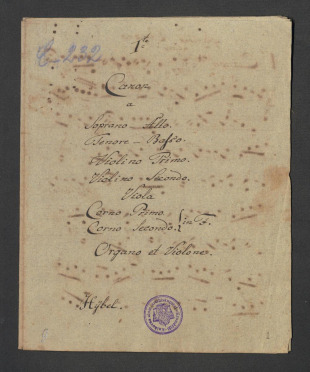 1.
a
Soprano Alto.
Tenore - Basso.
Violino Primo.
Violino Secondo.
Viola
Corno Primo
Corno Secondo. } in F.
Organo et Violone.